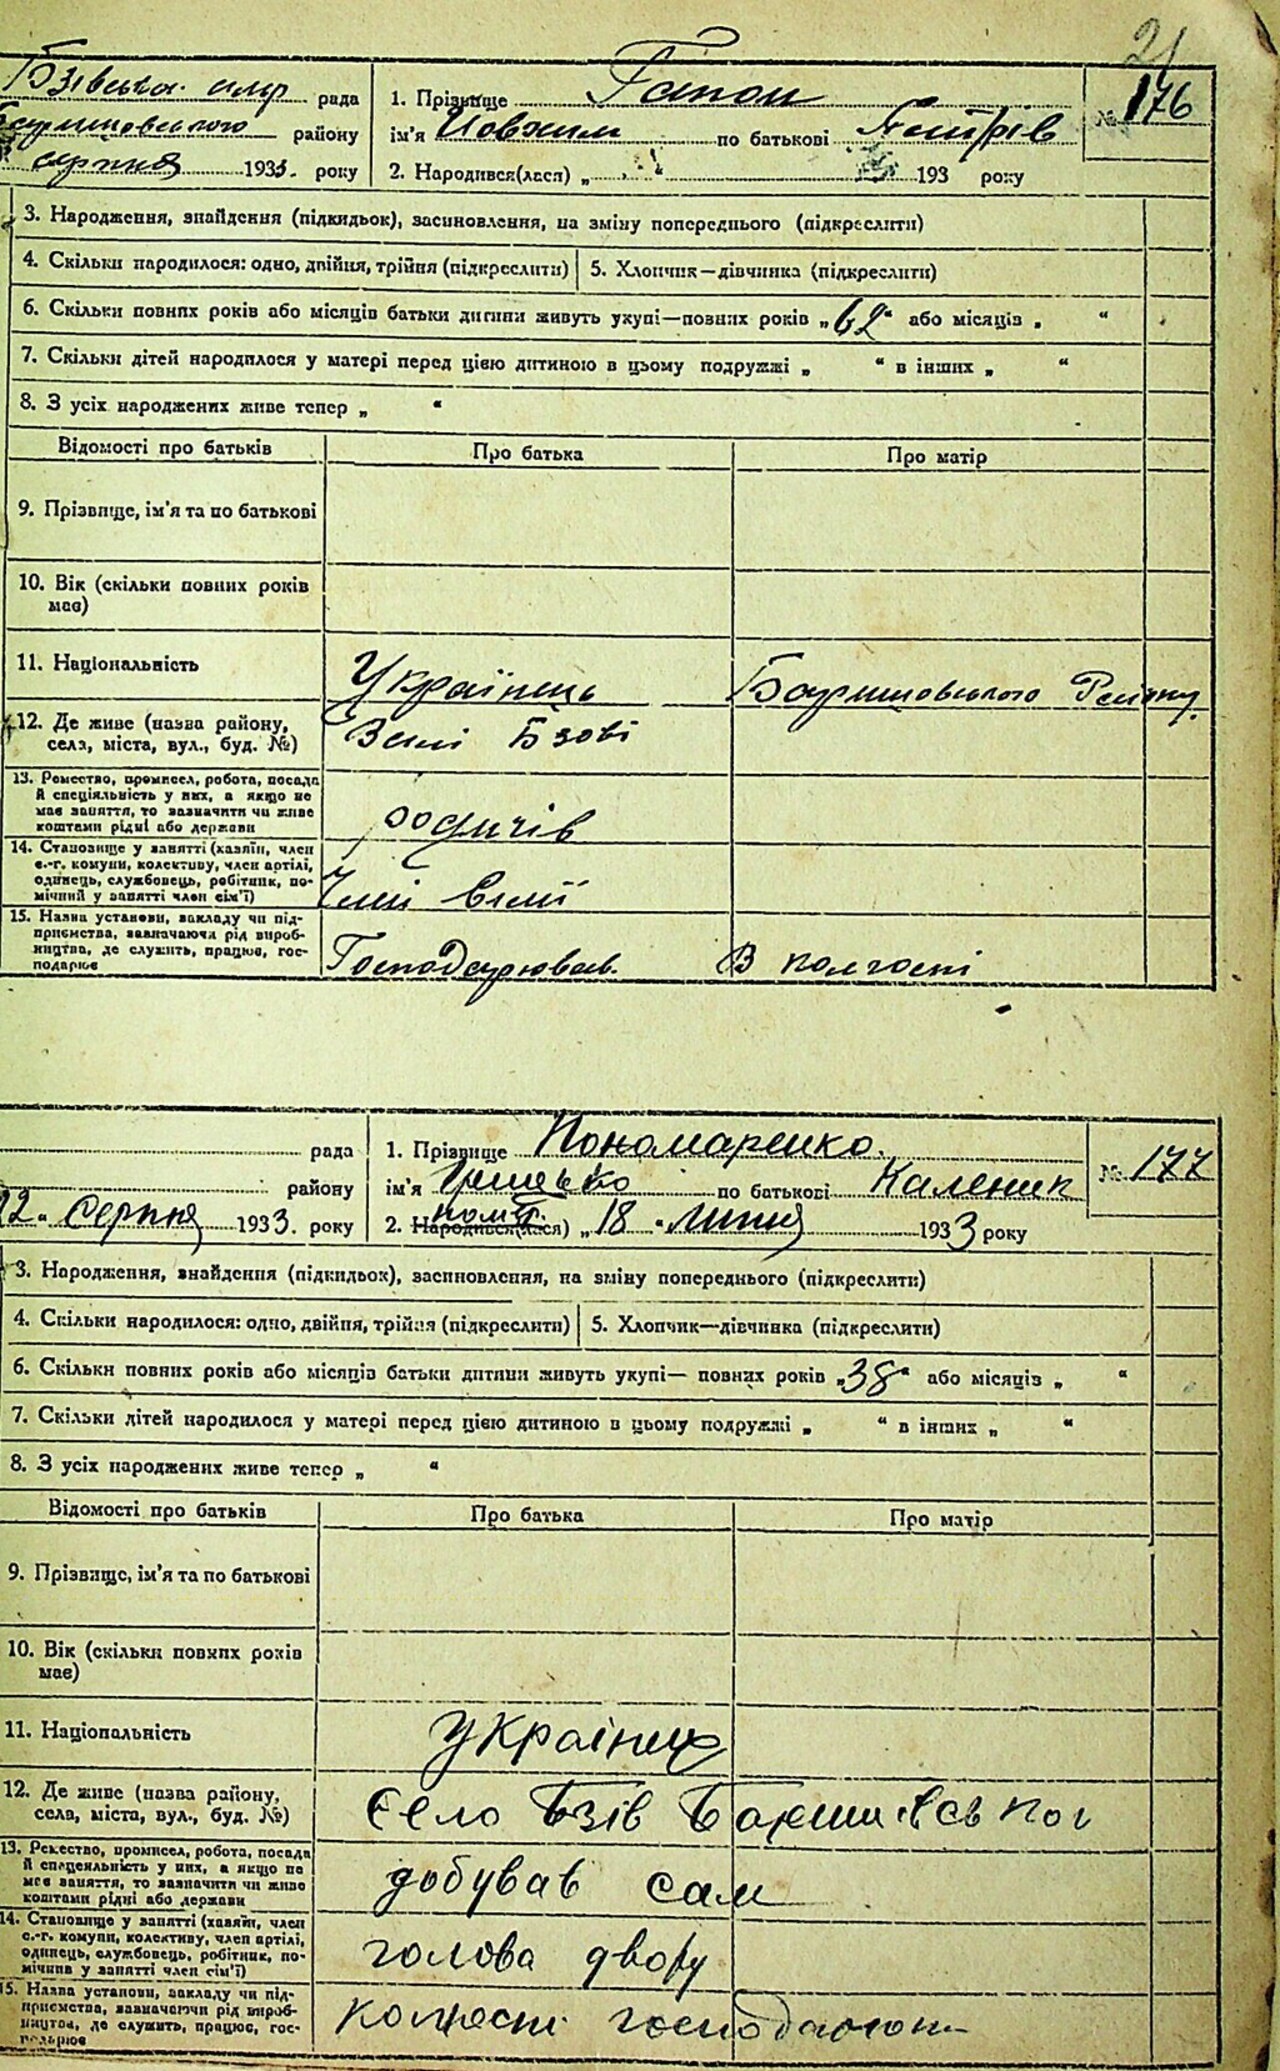 21
Бзівська рада
Баришовського району
серпня 1933. року
1. Прізвище Гапон
№ 176
ім'я Йовхим по батькові
2. Народився(лася) „ 193 року
3. Народження, знайдення (підкидьок), засиновлення, на зміну попереднього (підкреслити)
4. Скільки народилося: одно, двійня, трійня (підкреслити)
5. Хлопчик—дівчинка (підкреслити)
6. Скільки повних років або місяців батьки дитини живуть укупі—повних років „62“ або місяців „ “
7. Скільки дітей народилося у матері перед цією дитиною в цьому подружжі „ “ в інших „ “
8. З усіх народжених живе тепер „ “
Відомості про батьків
Про батька
Про матір
9. Прізвище, ім'я та по батькові
10. Вік (скільки повних років
має)
11. Національність
Українець
Баришовського Району
12. Де живе (назва району,
села, міста, вул., буд. №)
Взелі Бзові
13. Ремество, промисел, робота, посада
й спеціяльність у них, а якщо не
має заняття, то зазначити чи живе
коштами рідні або держави
родичів
14. Становище у занятті (хазяїн, член
с.-г. комуни, колективу, член артілі,
одинець, службовець, робітник, по-
мічний у занятті член сім'ї)
Член
15. Назва установи, закладу чи під-
приємства, зазначаючи рід вироб-
ництва, де служить, працює, гос-
подарює
Господарював. В колгоспі
рада
району
22 „ Серпня 1933. року
1. Прізвище Пономаренко.
№ 177
ім'я Грицько по батькові Каленик
2. Народився(лася) помер. „18 “ Липня 1933 року
3. Народження, знайдення (підкидьок), засиновлення, на зміну попереднього (підкреслити)
4. Скільки народилося: одно, двійня, трійня (підкреслити)
5. Хлопчик—дівчинка (підкреслити)
6. Скільки повних років або місяців батьки дитини живуть укупі— повних років „38“ або місяців „ “
7. Скільки дітей народилося у матері перед цією дитиною в цьому подружжі „ “ в інших „ “
8. З усіх народжених живе тепер „ “
Відомості про батьків
Про батька
Про матір
9. Прізвище, ім'я та по батькові
10. Вік (скільки повних років
має)
11. Національність
українець
12. Де живе (назва району,
села, міста, вул., буд. №)
Село Бзів
13. Ремество, промисел, робота, посада
й спеціяльність у них, а якщо не
має заняття, то зазначити чи живе
коштами рідні або держави
добував сам
14. Становище у занятті (хазяїн, член
с.-г. комуни, колективу, член артілі,
одинець, службовець, робітник, по-
мічний у занятті член сім'ї)
голова двору
15. Назва установи, закладу чи під-
приємства, зазначаючи рід вироб-
ництва, де служить, працює, гос-
подарює